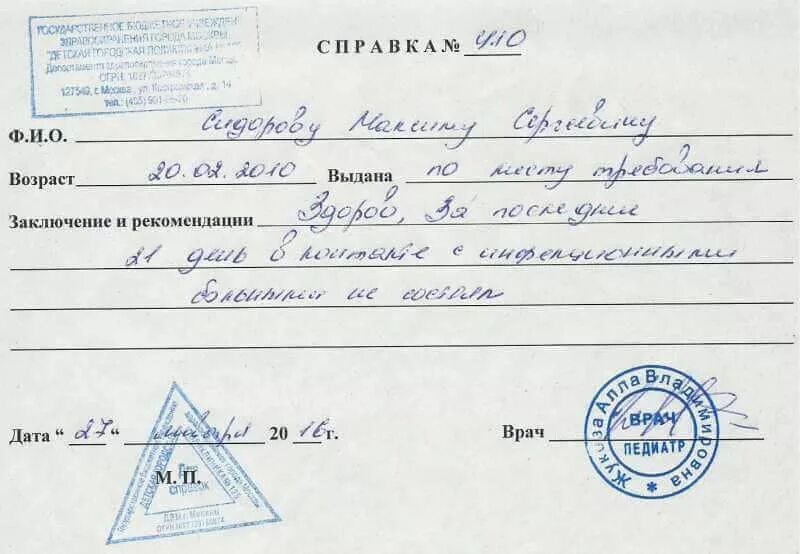 ГОСУДАРСТВЕННОЕ БЮДЖЕТНОЕ УЧРЕЖДЕНИЕ
ЗДРАВООХРАНЕНИЯ ГОРОДА МОСКВЫ
"ДЕТСКАЯ ГОРОДСКАЯ ПОЛИКЛИНИКА
Департамента здравоохранения города Москвы
ОГРН
127549, г. Москва, ул. Костромская, д. 14
тел.: (495) 901
СПРАВКА № 410
Ф.И.О. Сидорову Максиму Сергеевичу
Возраст 20.02.2010 Выдана по месту требования
Заключение и рекомендации Здоров, За последние
21 день в контакте с инфекционными
больными не состоял
Дата "27" 2016г. Врач
М. П.
Для справок
Жукова Алла Владимировна
ВРАЧ
ПЕДИАТР